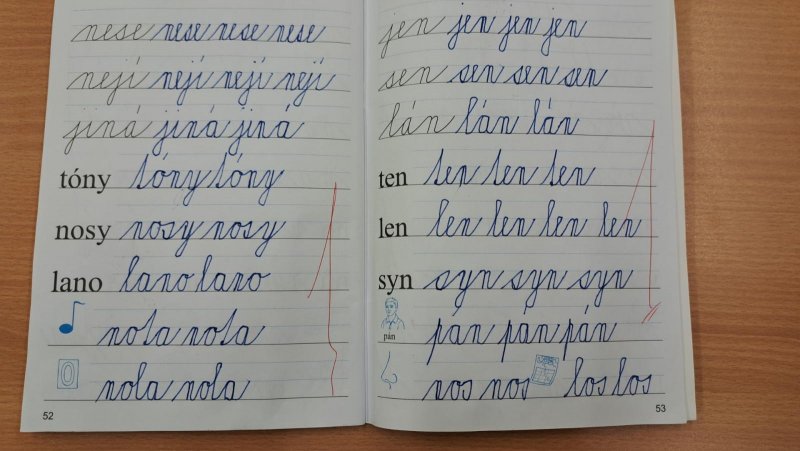 nese nese nese nese
nejí nejí nejí nejí
jiná jiná jiná
tóny tóny tóny
nosy nosy nosy
lano lano lano
nota nota
0 nola nola
52
jen jen jen jen
sen sen sen sen
lán lán lán
ten ten ten ten
len len len len len
syn syn syn syn
pán pán pán pán
nos nos los los
53